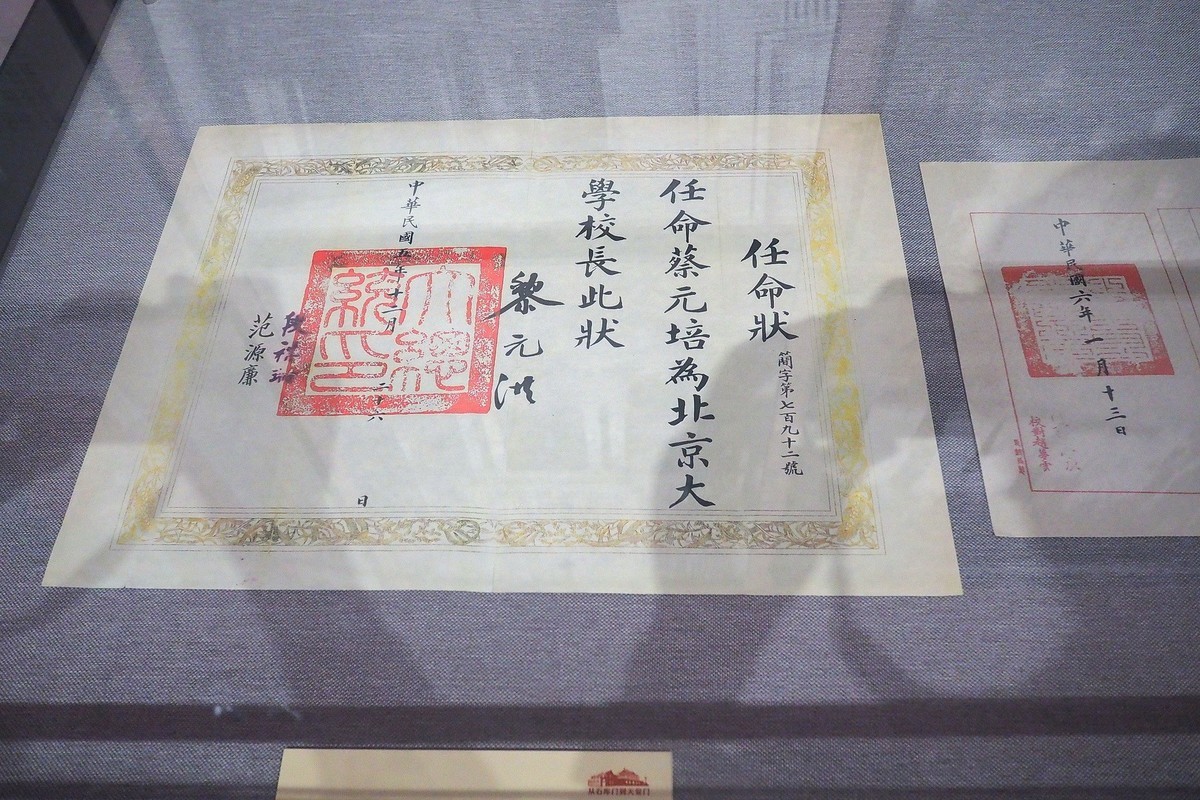 任命狀
簡字第七百九十二號
任命蔡元培為北京大
學校長此狀
黎元洪
大總
統印
中華民國五年十二月二十六日
段祺瑞
范源廉
中華民國六年一月十三日
从石库门到天安门